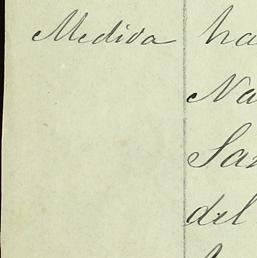 Medida ha
Na
San
del